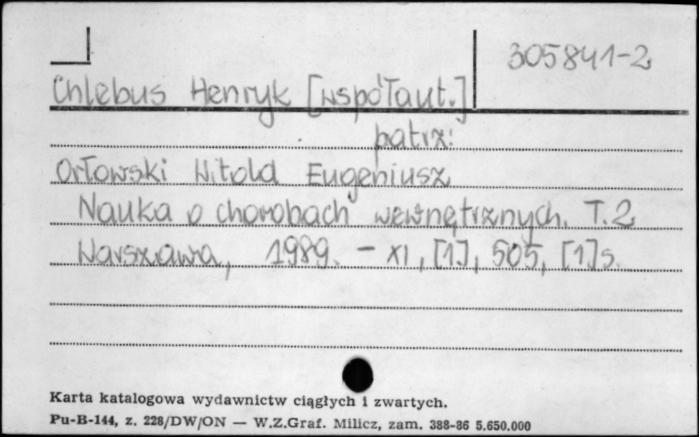 305841-2
Chlebus Henryk [współaut.]
patrz:
Orłowski Witold Eugeniusz
Nauka o chorobach wewnętrznych. T.2
Warszawa, 1989. - XI, [1], 505, [1]s.
Karta katalogowa wydawnictw ciągłych i zwartych.
Pu-B-144, z. 228/DW/ON — W.Z.Graf. Milicz, zam. 388-86 5.650.000